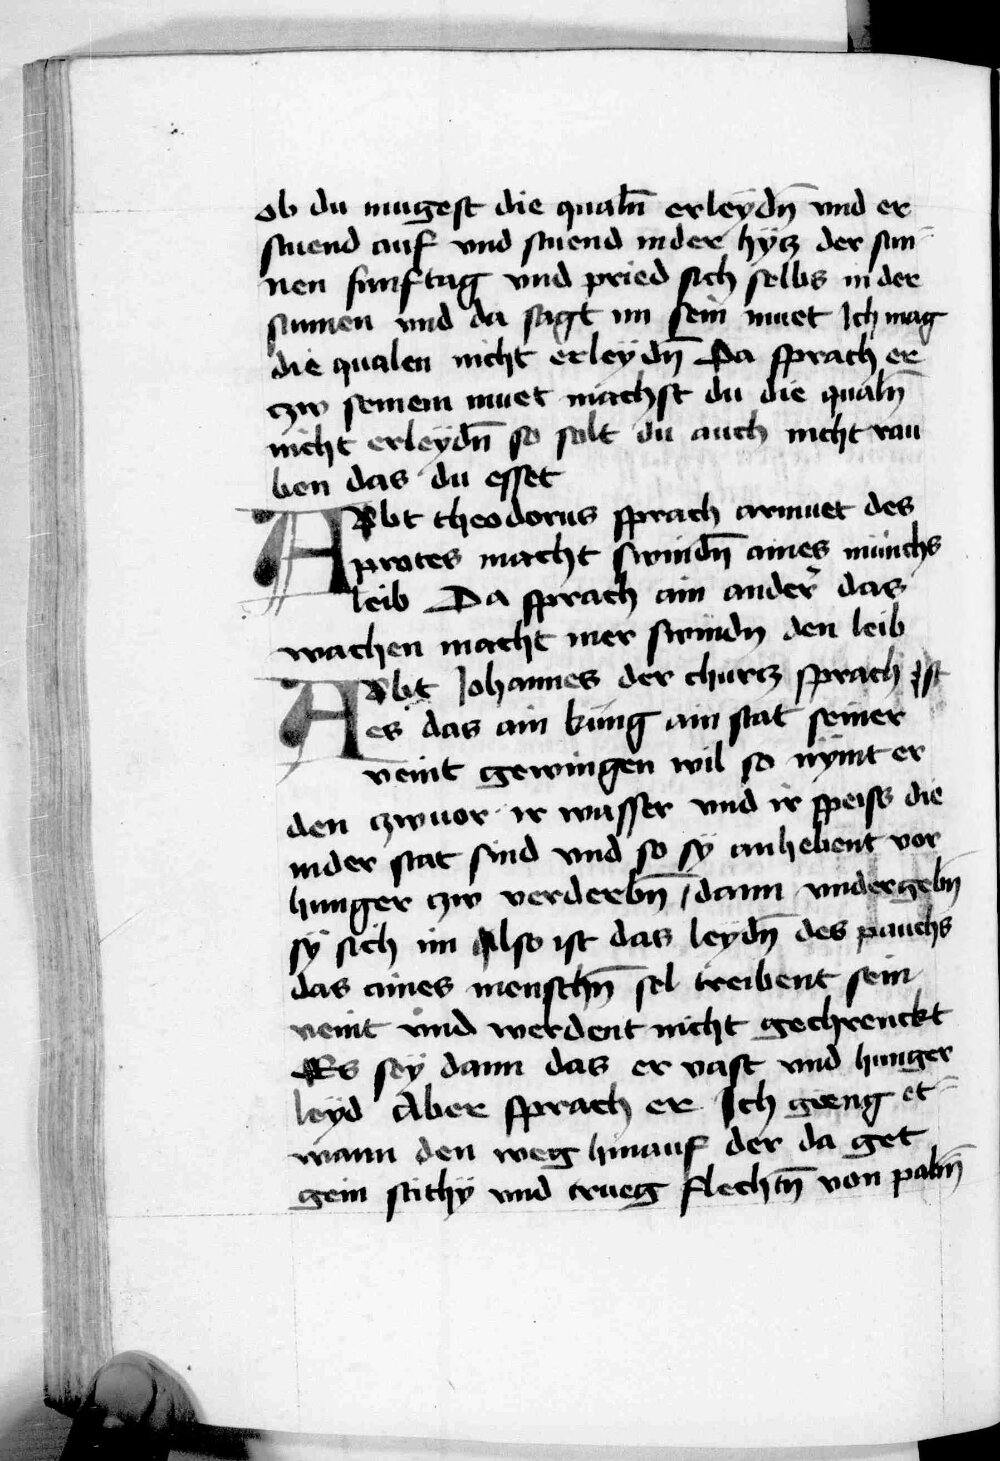 ob du mugest die qualn̄ erleydn̄ vnd er
stuend auf vnd stuend in der hytz der sun¯
nen funf tag vnd pried sich selbs in der
sunnen vnd da sagt im sein muet Ich mag
die qualen nicht erleydn̄ Da sprach er
czw seinem muet machst du die qualn̄
nicht erleydn̄ so solt du auch nicht rau
ben das du esset
ABbt theodorus sprach armuet des
protes macht swindn̄ aines münchs
leib Da sprach ain ander das
wachen macht mer swindn den leib
Abbt Johannes der churcz sprach Ist
es das ain küng ain stat seiner
veint gewingen wil so nymt er
den czwuor ir wasser vnd ir speiss die
in der stat sind vnd so sy anhebent vor
hunger czw verderbn̄ / dann vndergebn̄
sy sich im Also ist das leydn̄ des pauchs
das aines menschn̄ sel treibent sein
veint vnd werdent nicht gechrenckt
Es sey dann das er vast vnd hunger
leyd Aber sprach er Ich gieng et¯
wann den weg hinauf der da get
gein stithy vnd trueg flechtn̄ von palm̄